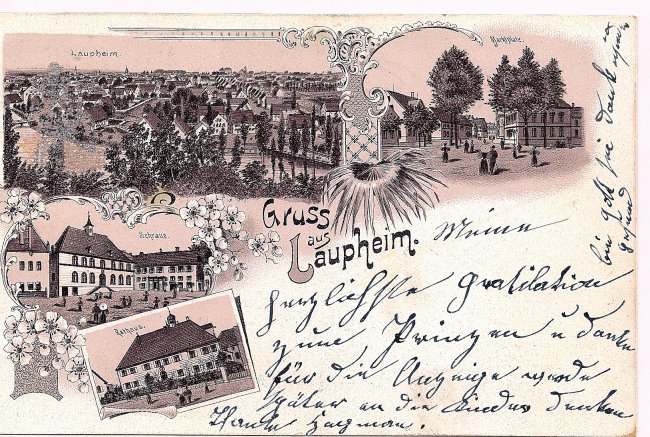 Laupheim.
Marktplatz.
Schranne.
Rathaus.
Gruss
aus
Laupheim.
Meine
herzlichste Gratilation
zum Prinzen u danke
für die Anzeige werde
später an die Kinder denken
bin Gott sei Dank
gesund